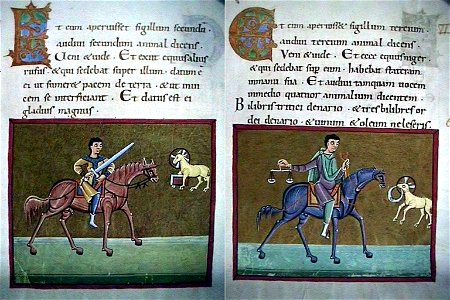 Et cum aperuisset sigillum secundum
audivi secundum animal dicens
Veni & vide. Et exivit equus alius
rufus. & qui sedebat super illum. datum e
ei ut sumeret pacem de terra. & ut invi
cem se interficiant. Et datus est ei
gladius magnus.
Et cum aperuisset sigillum tercium.
audivi tercium animal dicens.
Veni & vide. Et ecce equus niger.
& qui sedebat sup eum. habebat stateram in
manu sua. Et audivi tamquam vocem in
medio quatuor animalium dicentem.
Bilibris tritici denario. & tres bilibres or
dei denario. & vinum & oleum ne leseris.